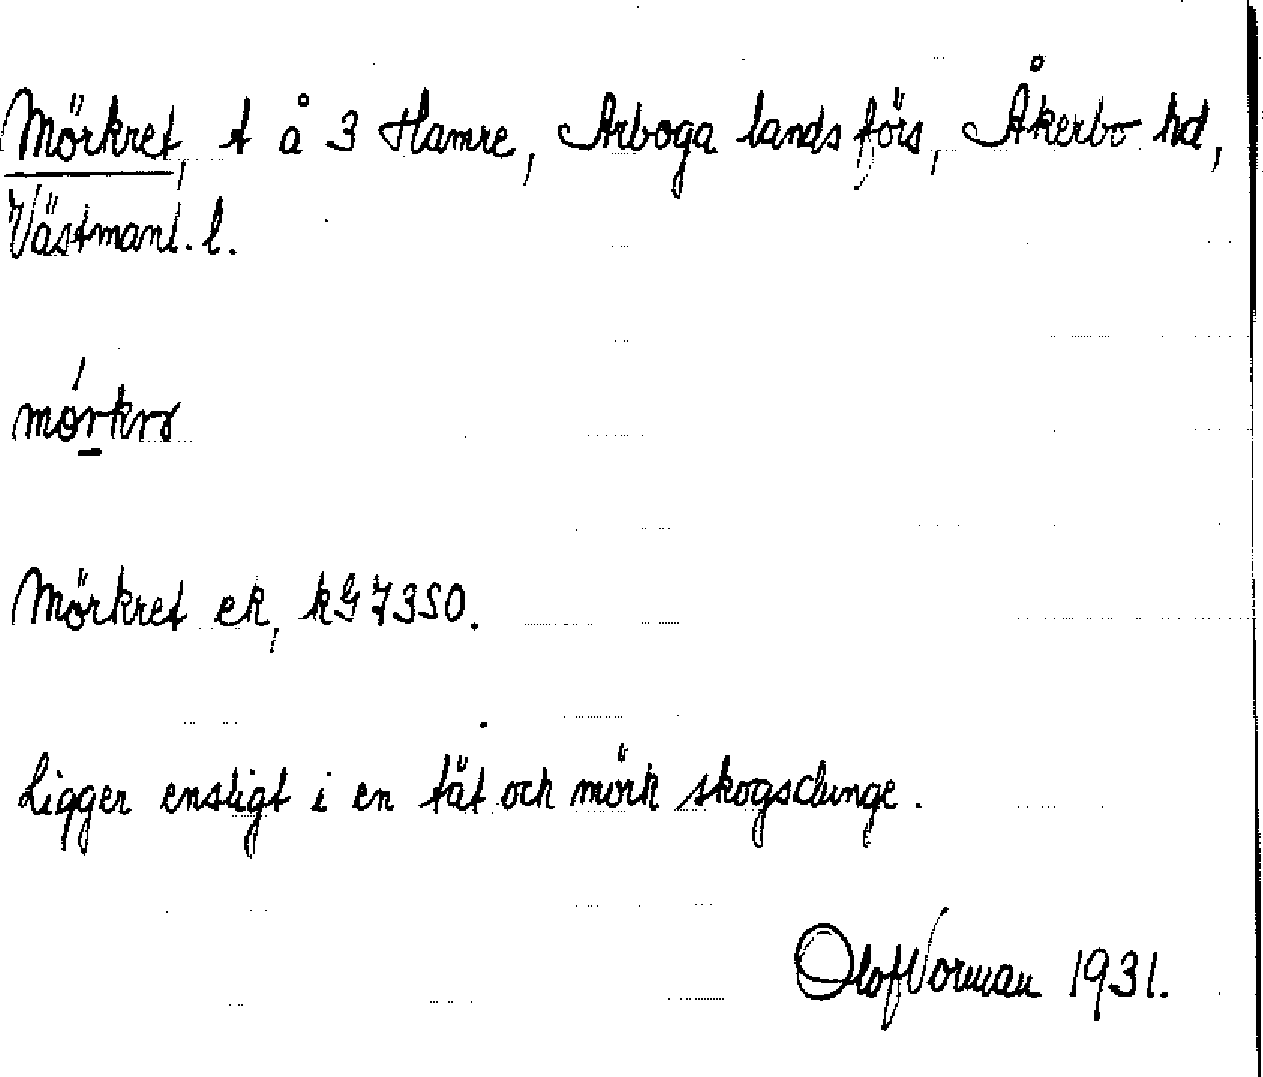 Mörkret, t å 3 Hamre, Arboga landsförs, Åkerbo hd,
Västmanl. l.
mörkrə
Mörkret ek, kG 7350.
Ligger ensligt i en tät och mörk skogsdunge.
Olof Vorman 1931.